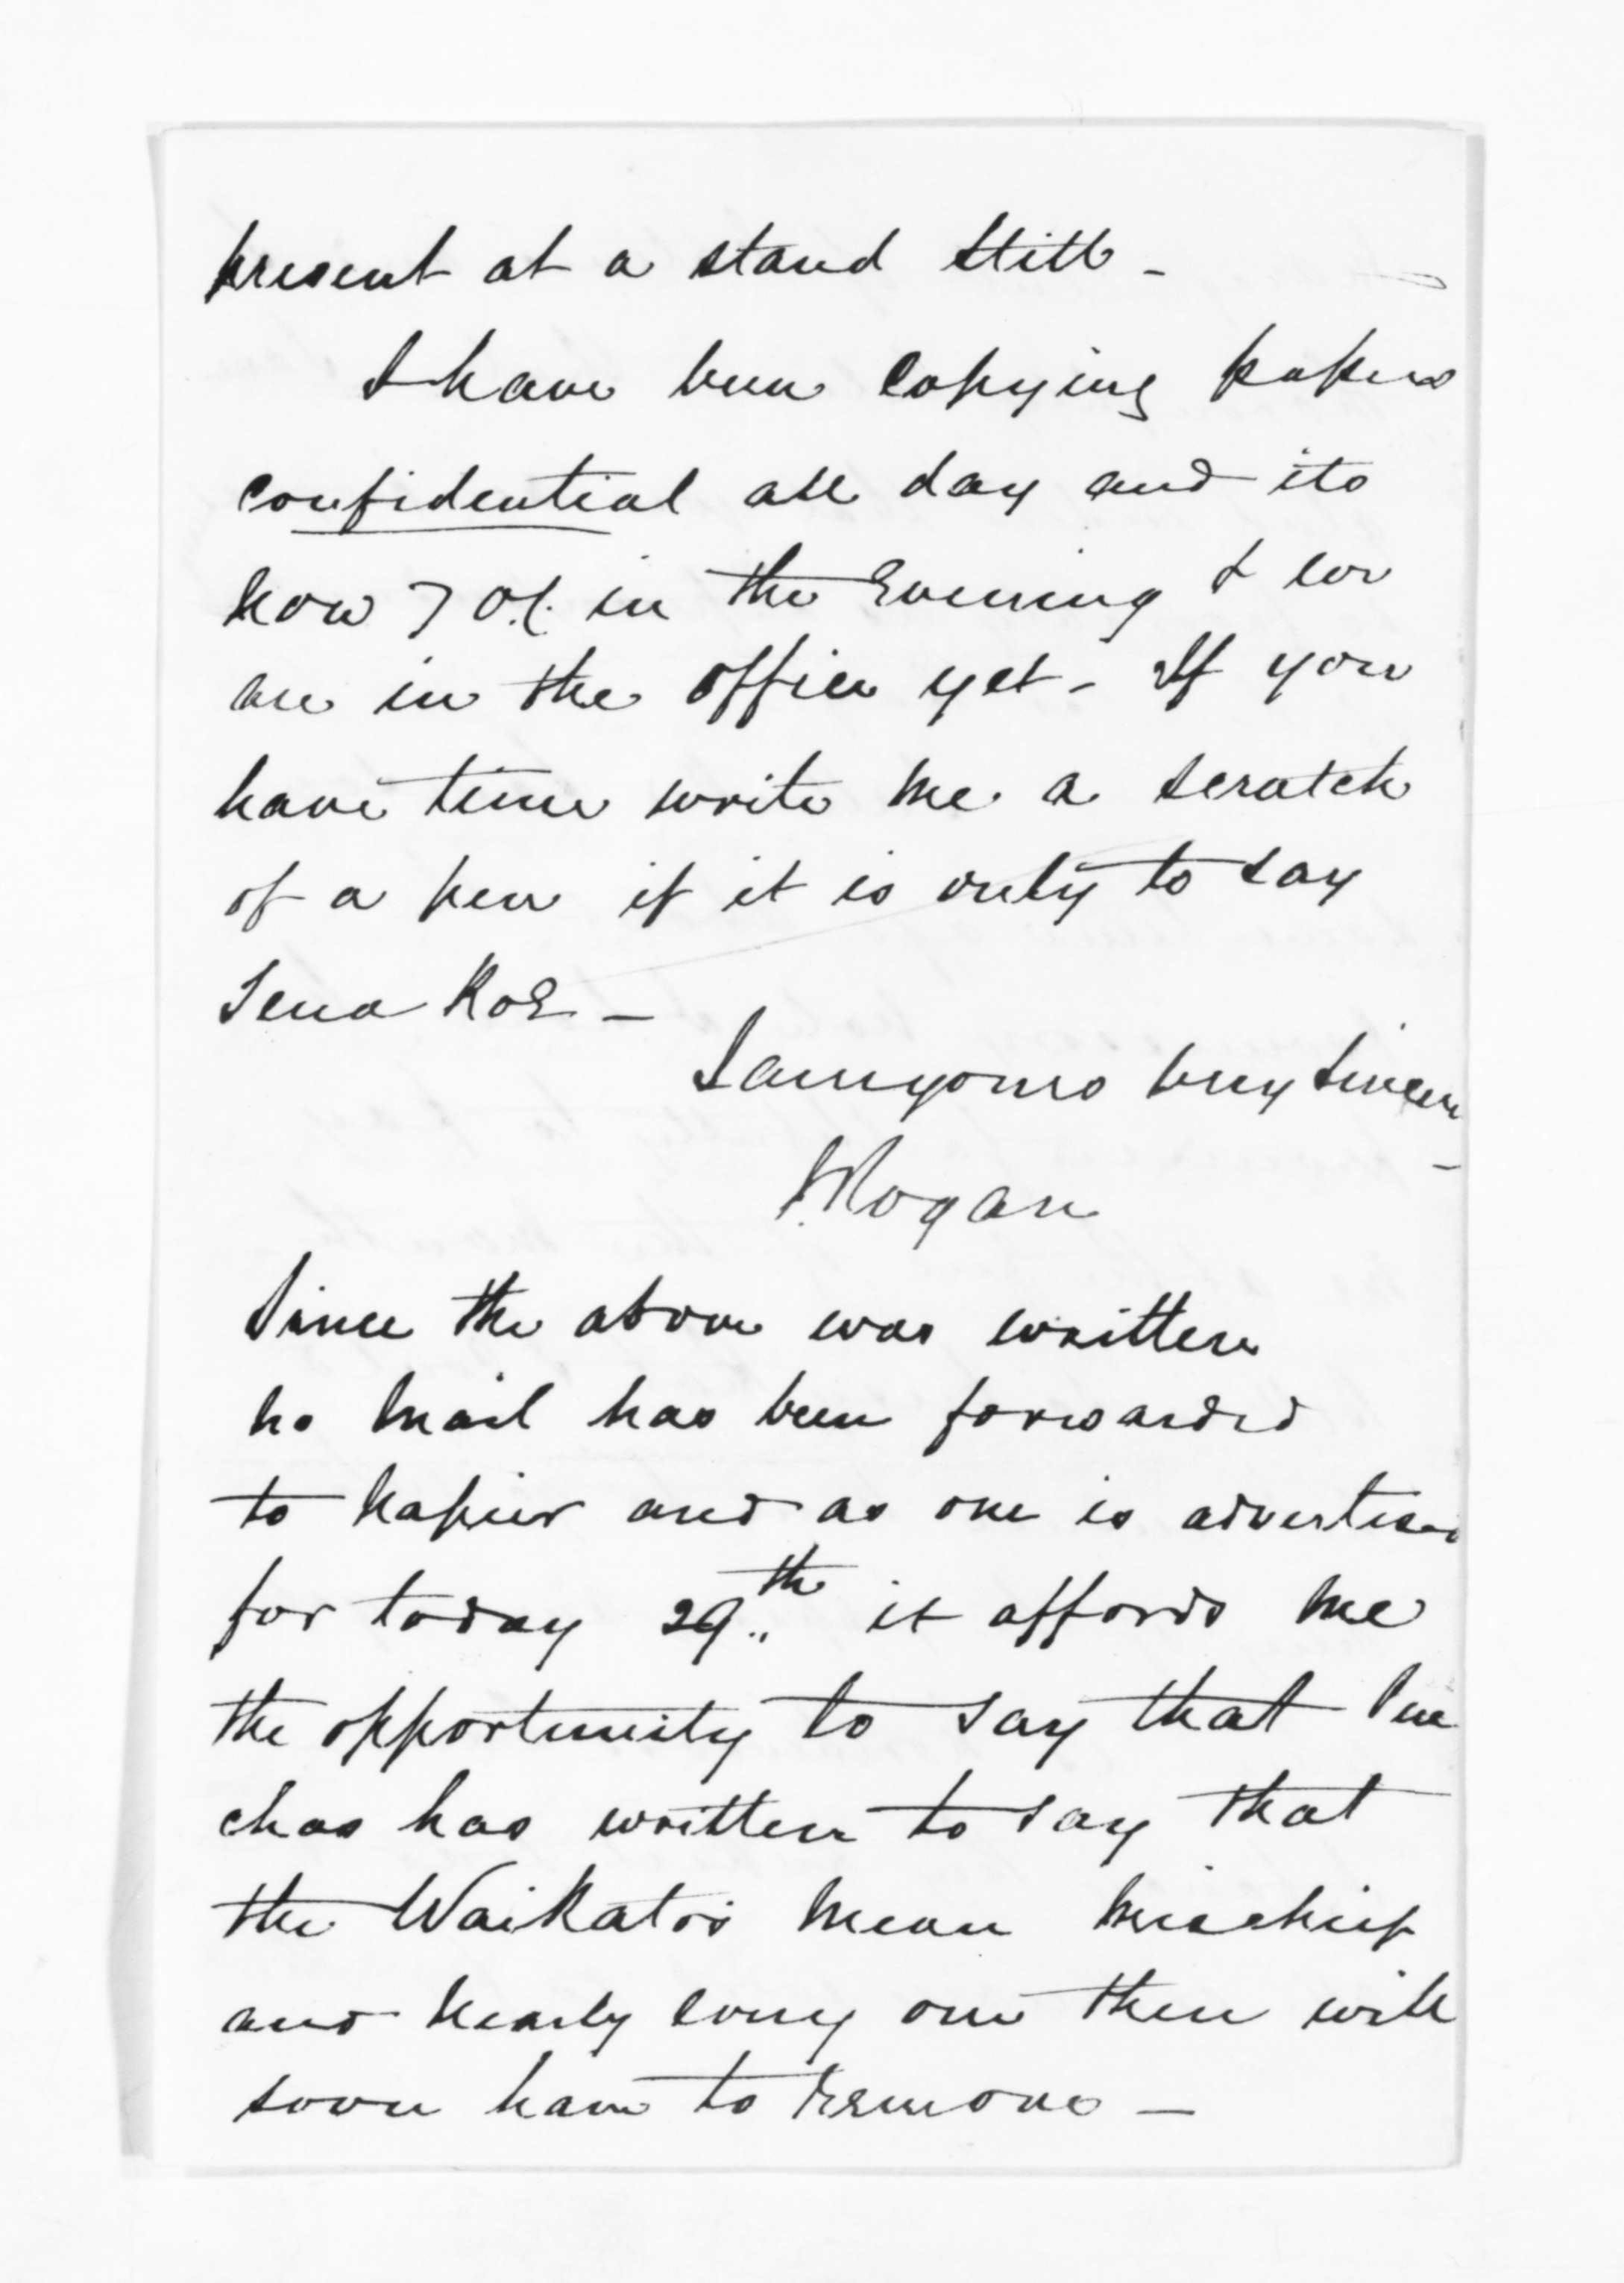 present at a stand still -
I have been copying papers
confidential all day and its
now 7 o/c. in the Evening & we
are in the office yet - If you
have time write me a scratch
of a pen if it is only to say
Tena Koe -
I am yours very Sincere
-
J Rogan
Since the above was written
no mail has been forwarded
to Napier and as one is advertised
for today 29th it affords me
the opportunity to say that Pur
chas has written to say that
the Waikatos mean mischief
and nearly every one there will
soon have to remove -